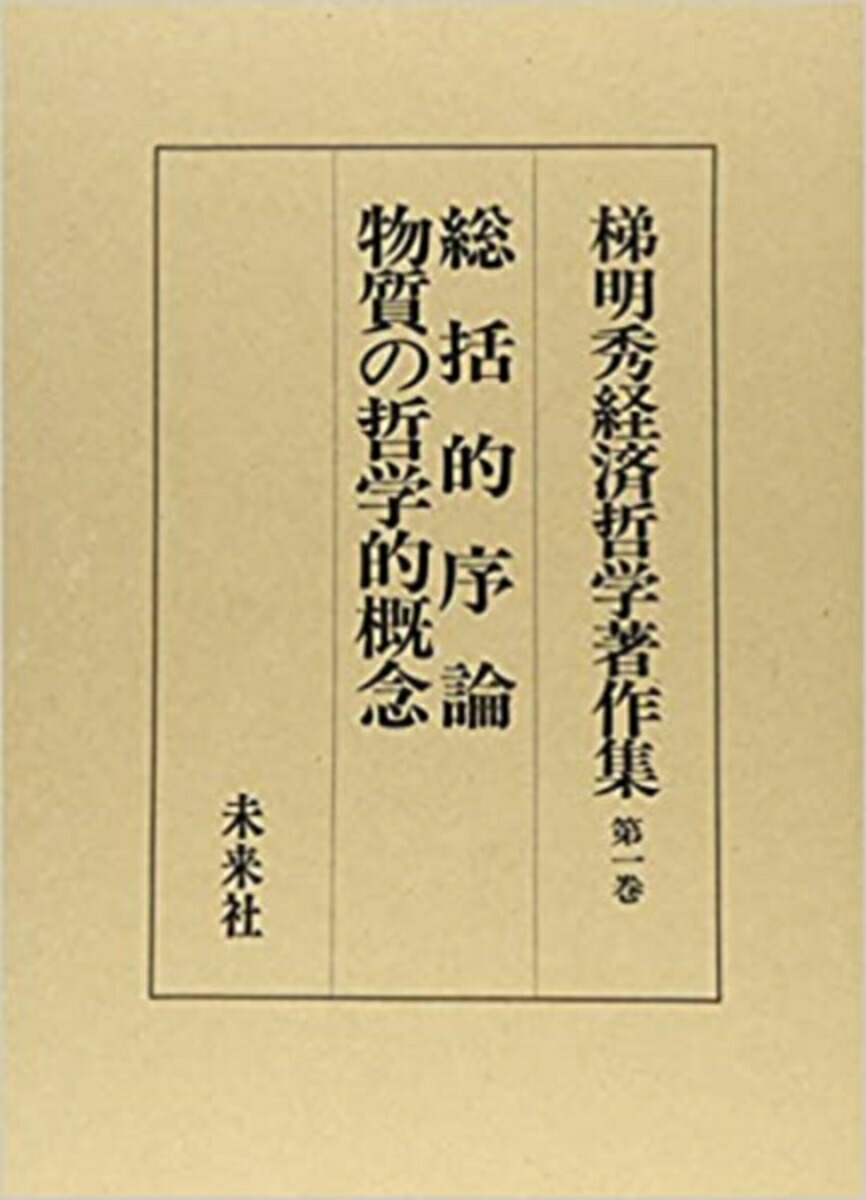 梯明秀経済哲学著作集 第一巻
総括的序論
物質の哲学的概念
未来社